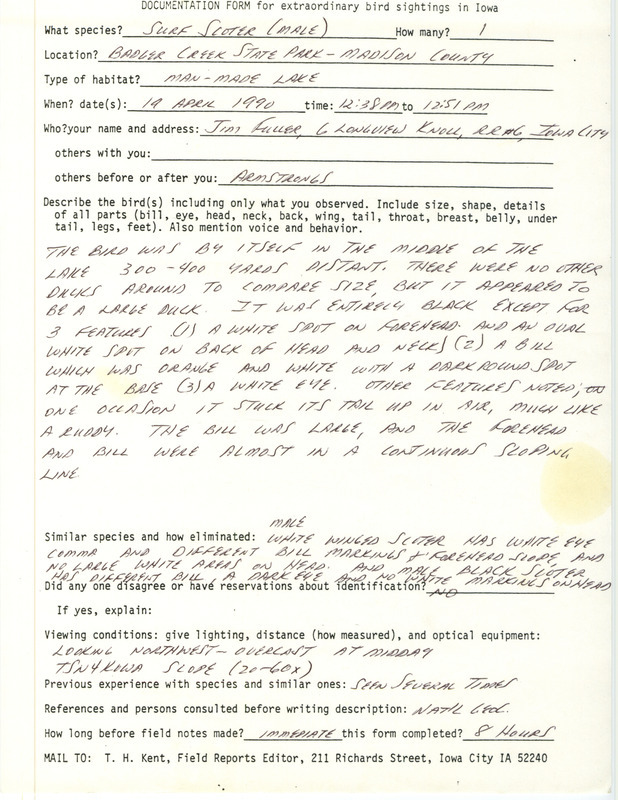 DOCUMENTATION FORM for extraordinary bird sightings in Iowa
What species? SURF SCOTER (MALE) How many? 1
Location? BADGER CREEK STATE PARK - MADISON COUNTY
Type of habitat? MAN-MADE LAKE
When? date(s): 19 APRIL 1990 time: 12:38 PM to 12:51 PM
Who?your name and address: JIM FULLER, 6 LONGVIEW KNOLL, RR#6, IOWA CITY
others with you:
others before or after you: ARMSTRONGS
Describe the bird(s) including only what you observed. Include size, shape, details
of all parts (bill, eye, head, neck, back, wing, tail, throat, breast, belly, under
tail, legs, feet). Also mention voice and behavior.
THE BIRD WAS BY ITSELF IN THE MIDDLE OF THE
LAKE 300-400 YARDS DISTANT. THERE WERE NO OTHER
DUCKS AROUND TO COMPARE SIZE, BUT IT APPEARED TO
BE A LARGE DUCK. IT WAS ENTIRELY BLACK EXCEPT FOR
3 FEATURES (1) A WHITE SPOT ON FOREHEAD AND AN OVAL
WHITE SPOT ON BACK OF HEAD AND NECK) (2) A BILL
WHICH WAS ORANGE AND WHITE WITH A DARK ROUND SPOT
AT THE BASE (3) A WHITE EYE. OTHER FEATURES NOTED; ON
ONE OCCASION IT STUCK ITS TAIL UP IN AIR, MUCH LIKE
A RUDDY. THE BILL WAS LARGE, AND THE FOREHEAD
AND BILL WERE ALMOST IN A CONTINUOUS SLOPING
LINE.
MALE
Similar species and how eliminated: WHITE WINGED SCOTER HAS WHITE EYE
COMMA AND DIFFERENT BILL MARKINGS & FOREHEAD SLOPE, AND
NO LARGE WHITE AREAS ON HEAD. AND MALE BLACK SCOTER
HAS DIFFERENT BILL, A DARK EYE AND NO WHITE MARKINGS ON HEAD
Did any one disagree or have reservations about identification? NO
If yes, explain:
Viewing conditions: give lighting, distance (how measured), and optical equipment:
LOOKING NORTHWEST - OVERCAST AT MIDDAY
TSN4 KOWA SCOPE (20-60X)
Previous experience with species and similar ones: SEEN SEVERAL TIMES
References and persons consulted before writing description: NAT'L GEO.
How long before field notes made? IMMEDIATE this form completed? 8 HOURS
MAIL TO: T. H. Kent, Field Reports Editor, 211 Richards Street, Iowa City IA 52240